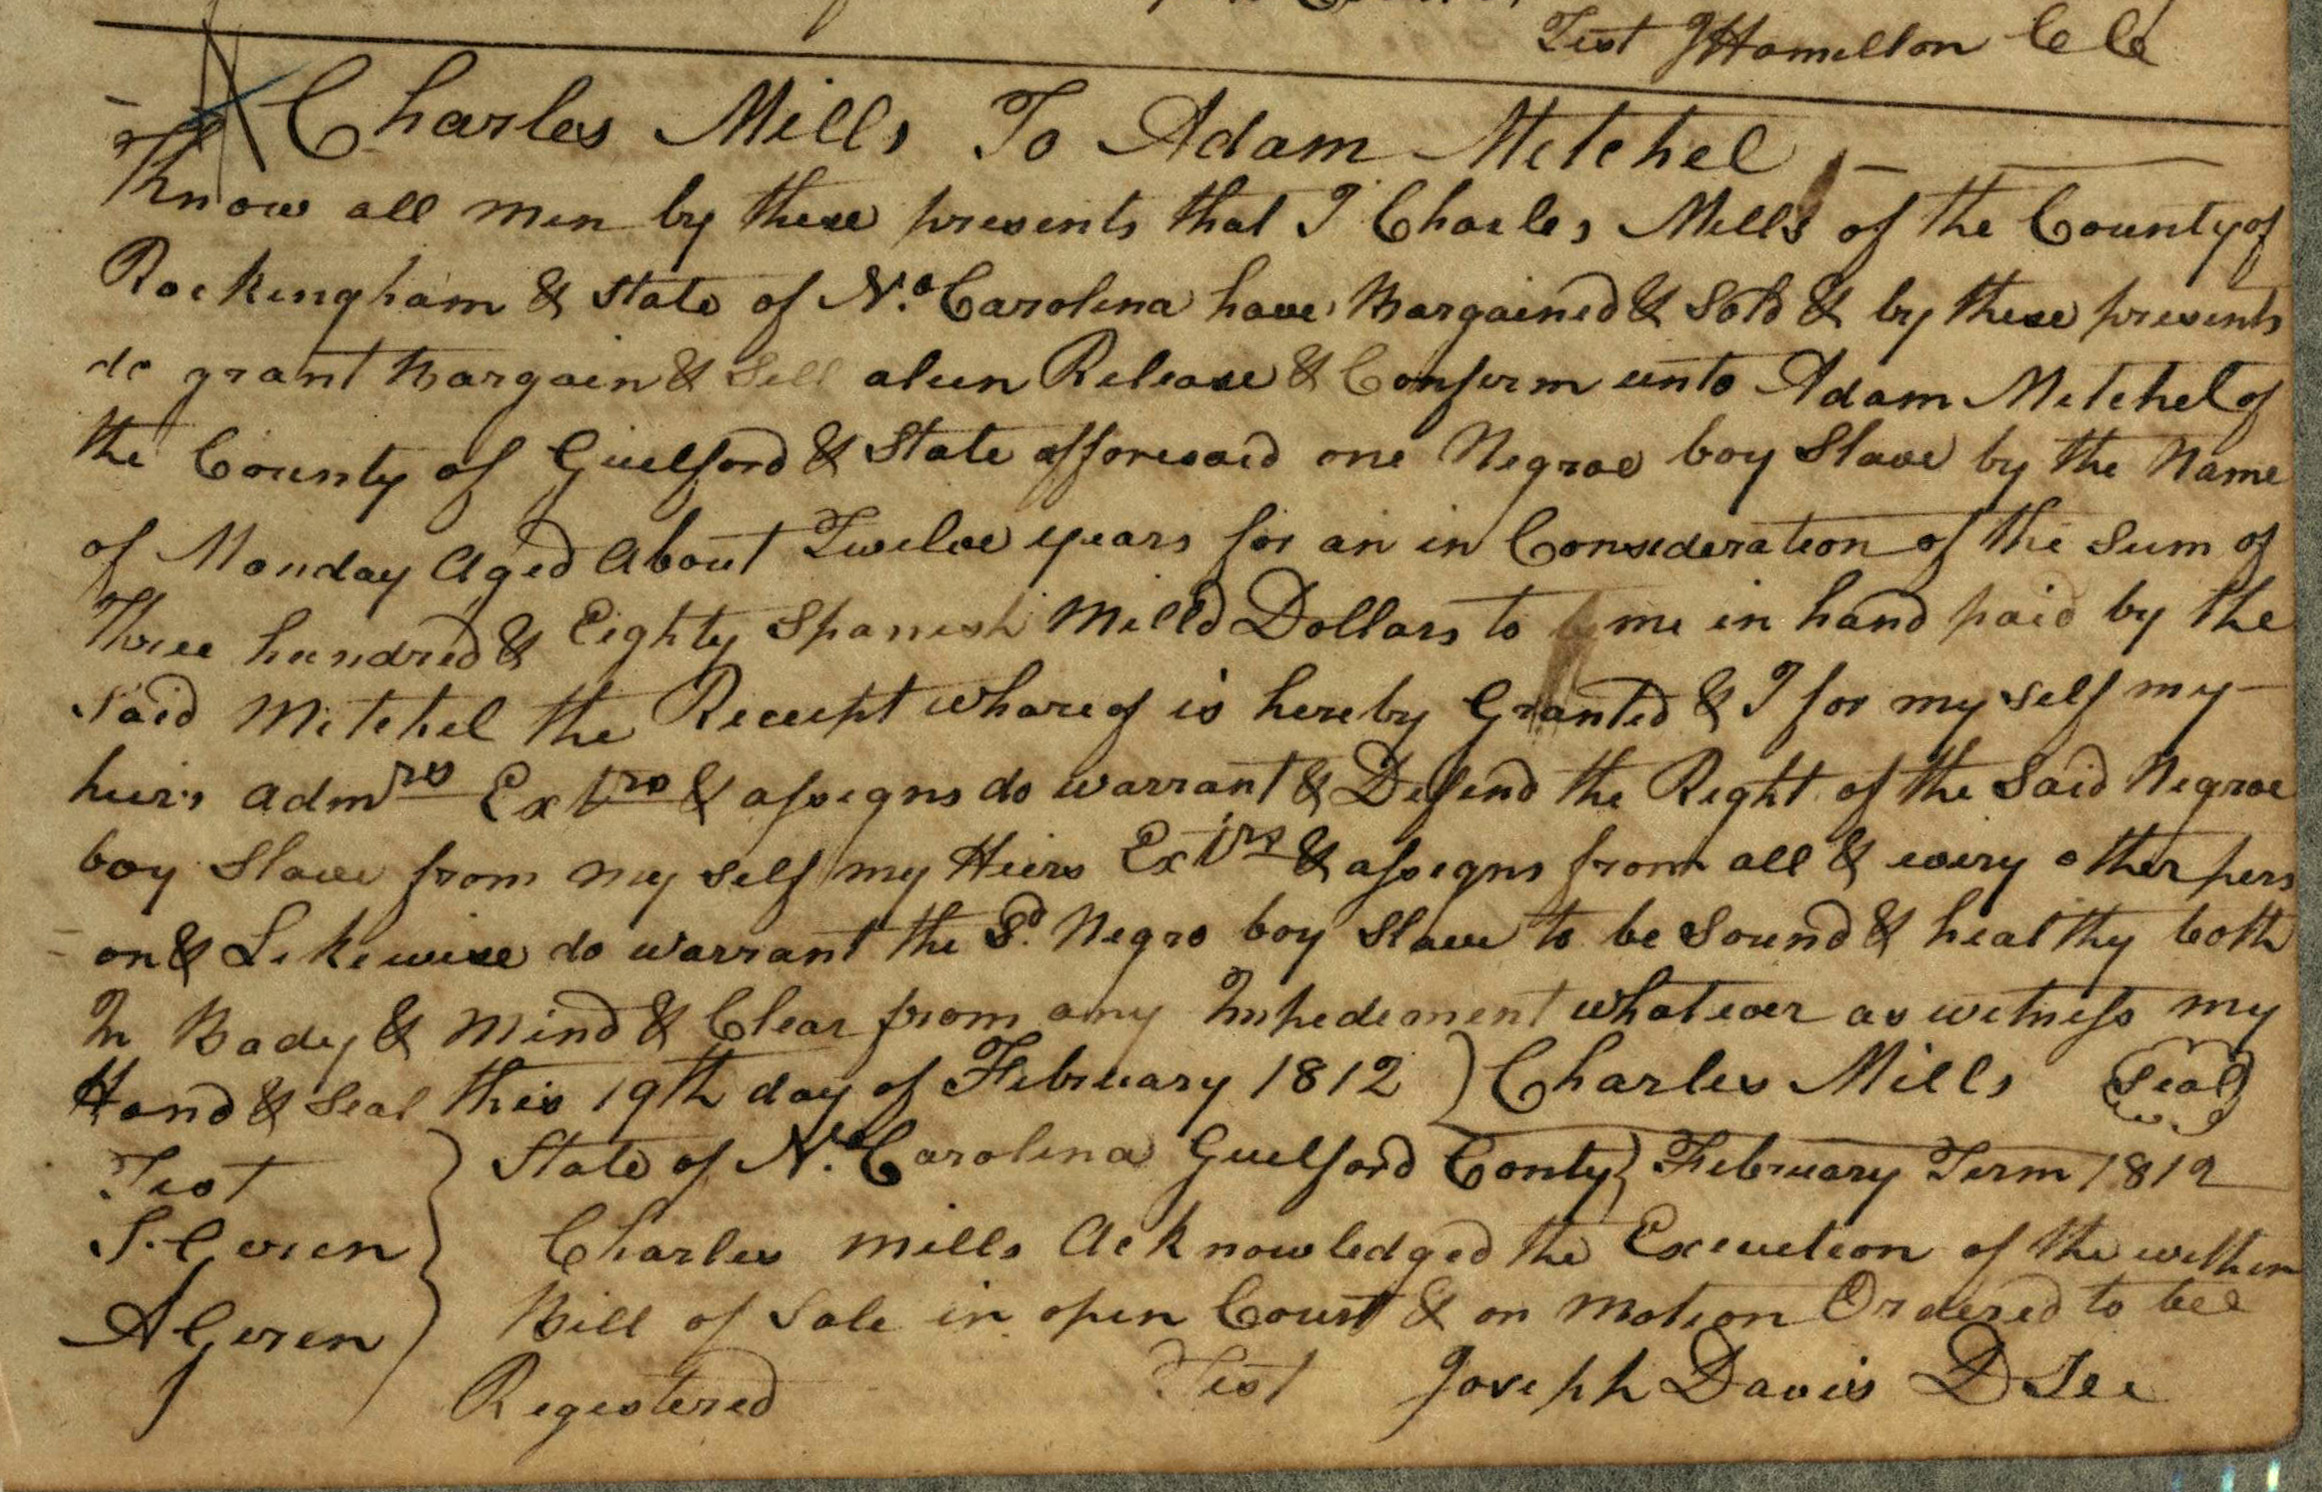 Test J Hamilton C C
Charles Mills To Adam Mitchel
Know all men by these presents that I Charles Mills of the County of
Rockingham & State of No. Carolina have Bargained & Sold & by these presents
do grant Bargain & Sell alien Release & Confirm unto Adam Mitchel of
the County of Guilford & State afforesaid one Negroe boy Slave by the Name
of Monday Aged About Twelve years for an in Consideration of the Sum of
Three hundred & Eighty Spanish Milld Dollars to me in hand paid by the
Said Mitchel the Receipt whareof is hereby Granted & I for my self my
heirs admrs Extrs & assigns do warrant & Defend the Right of the Said Negroe
boy Slave from my self my Heirs Extrs & assigns from all & every other pers
on & Likewise do warrant the Sd. Negro boy Slave to be Sound & healthy both
In Body & Mind & Clear from any Impedement whatever as witness my
Hand & Seal this 19th day of February 1812 } Charles Mills Seal
Test } State of No. Carolina Guilford Conty } February Term 1812
S. Geren } Charles Mills Acknowledged the Execution of the within
A Geren } Bill of Sale in open Court & on Motion Ordered to bee
Registered Test Joseph Davis D